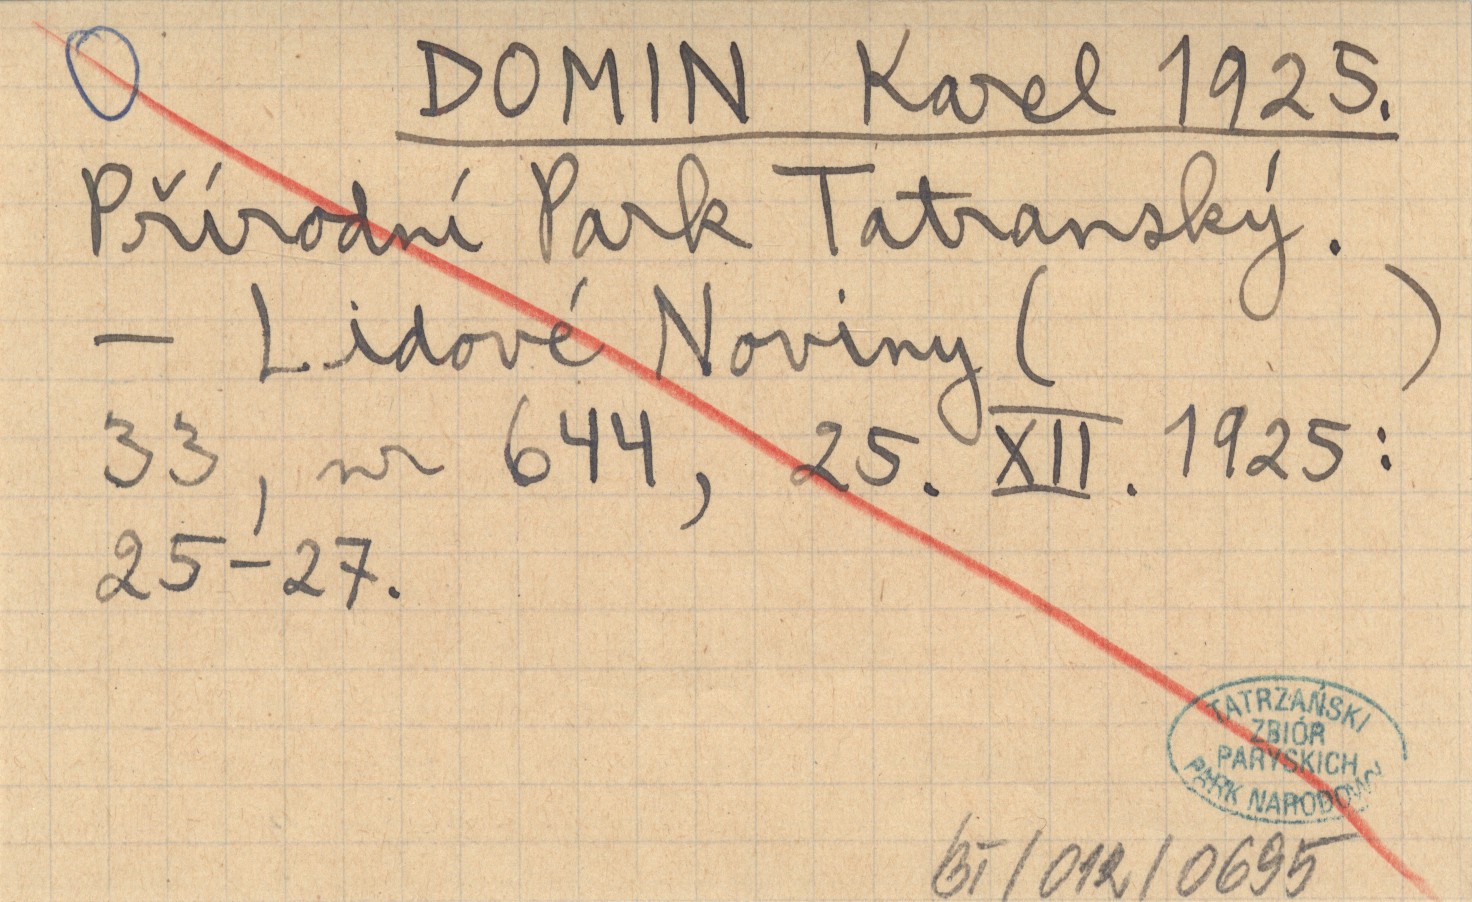 DOMIN Karel 1925.
Přírodní Park Tatranský.
— Lidové Noviny ( )
33, nr 644, 25. XII. 1925:
25–27.
TATRZAŃSKI
ZBIÓR
PARYSKICH
PARK NARODOWY
BT/012/0695